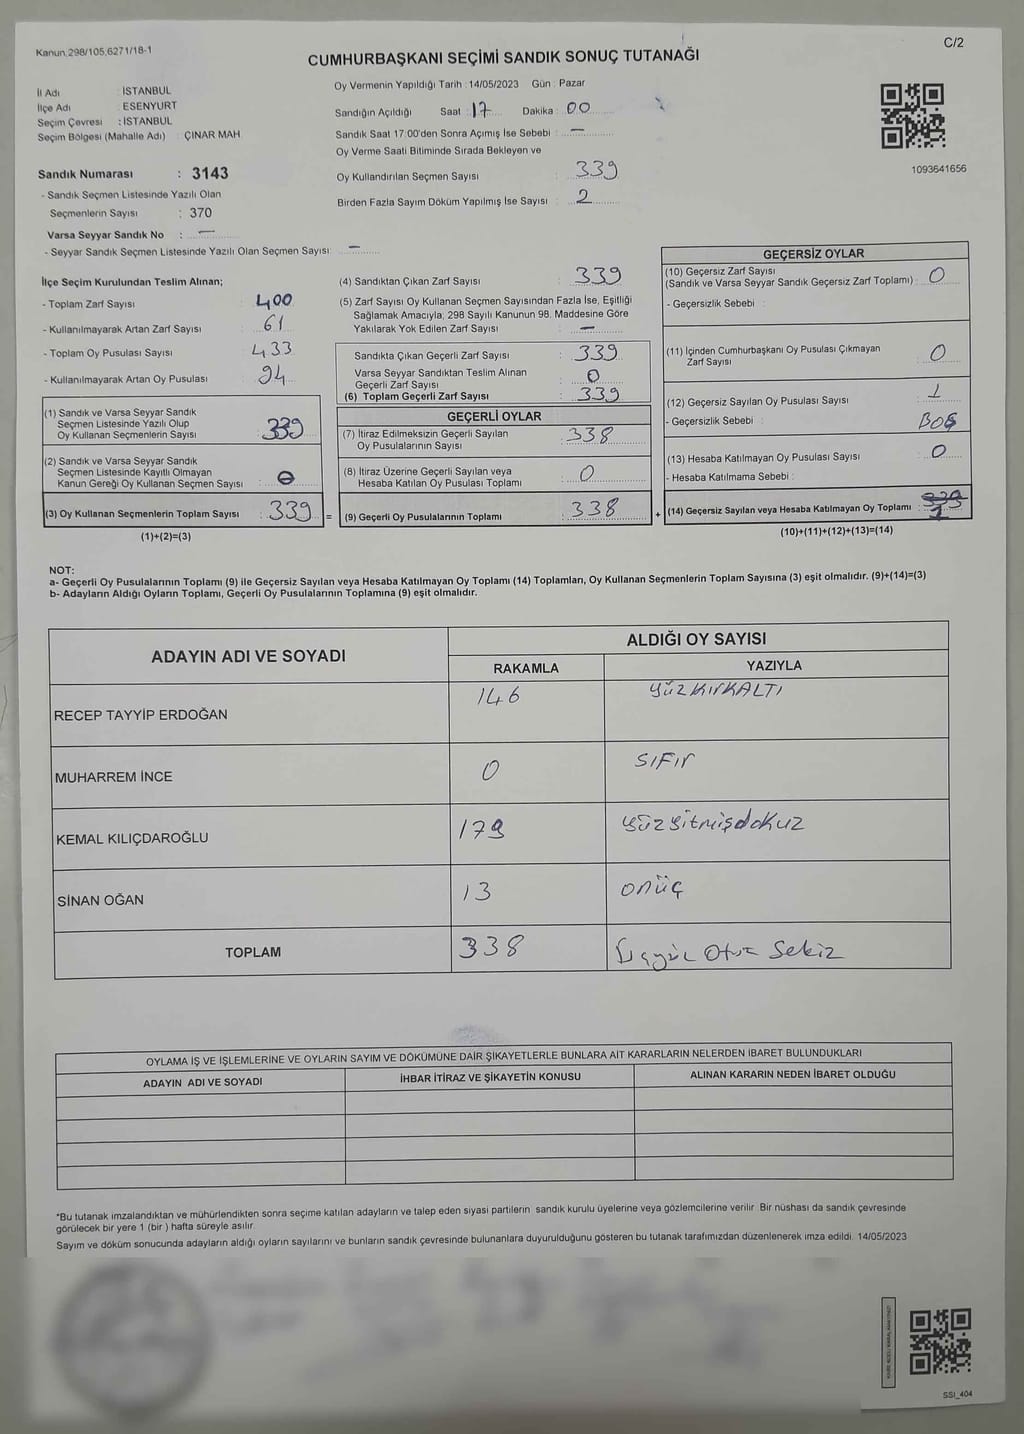 Kanun;298/105,6271/18-1
C/2
CUMHURBAŞKANI SEÇİMİ SANDIK SONUÇ TUTANAĞI
İl Adı : İSTANBUL
İlçe Adı : ESENYURT
Seçim Çevresi : İSTANBUL
Seçim Bölgesi (Mahalle Adı) : ÇINAR MAH
Sandık Numarası : 3143
- Sandık Seçmen Listesinde Yazılı Olan
Seçmenlerin Sayısı : 370
Varsa Seyyar Sandık No : —
- Seyyar Sandık Seçmen Listesinde Yazılı Olan Seçmen Sayısı: —
Oy Vermenin Yapıldığı Tarih : 14/05/2023 Gün : Pazar
Sandığın Açıldığı Saat : 17 Dakika : 00
Sandık Saat 17:00'den Sonra Açımış İse Sebebi : —
Oy Verme Saati Bitiminde Sırada Bekleyen ve
Oy Kullandırılan Seçmen Sayısı : 339
Birden Fazla Sayım Döküm Yapılmış İse Sayısı : 2
1093641656
İlçe Seçim Kurulundan Teslim Alınan;
- Toplam Zarf Sayısı : 400
- Kullanılmayarak Artan Zarf Sayısı : 61
- Toplam Oy Pusulası Sayısı : 433
- Kullanılmayarak Artan Oy Pusulası : 94
(1) Sandık ve Varsa Seyyar Sandık
Seçmen Listesinde Yazılı Olup
Oy Kullanan Seçmenlerin Sayısı : 339
(2) Sandık ve Varsa Seyyar Sandık
Seçmen Listesinde Kayıtlı Olmayan
Kanun Gereği Oy Kullanan Seçmen Sayısı : 0
(3) Oy Kullanan Seçmenlerin Toplam Sayısı : 339 =
(1)+(2)=(3)
(4) Sandıktan Çıkan Zarf Sayısı : 339
(5) Zarf Sayısı Oy Kullanan Seçmen Sayısından Fazla İse, Eşitliği
Sağlamak Amacıyla; 298 Sayılı Kanunun 98. Maddesine Göre
Yakılarak Yok Edilen Zarf Sayısı : —
Sandıkta Çıkan Geçerli Zarf Sayısı : 339
Varsa Seyyar Sandıktan Teslim Alınan
Geçerli Zarf Sayısı : 0
(6) Toplam Geçerli Zarf Sayısı : 339
GEÇERLİ OYLAR
(7) İtiraz Edilmeksizin Geçerli Sayılan
Oy Pusulalarının Sayısı : 338
(8) İtiraz Üzerine Geçerli Sayılan veya
Hesaba Katılan Oy Pusulası Toplamı : 0
(9) Geçerli Oy Pusulalarının Toplamı : 338 +
GEÇERSİZ OYLAR
(10) Geçersiz Zarf Sayısı
(Sandık ve Varsa Seyyar Sandık Geçersiz Zarf Toplamı) : 0
- Geçersizlik Sebebi :
(11) İçinden Cumhurbaşkanı Oy Pusulası Çıkmayan
Zarf Sayısı : 0
(12) Geçersiz Sayılan Oy Pusulası Sayısı : 1
- Geçersizlik Sebebi : BOŞ
(13) Hesaba Katılmayan Oy Pusulası Sayısı : 0
- Hesaba Katılmama Sebebi :
(14) Geçersiz Sayılan veya Hesaba Katılmayan Oy Toplamı : 1
(10)+(11)+(12)+(13)=(14)
NOT:
a- Geçerli Oy Pusulalarının Toplamı (9) ile Geçersiz Sayılan veya Hesaba Katılmayan Oy Toplamı (14) Toplamları, Oy Kullanan Seçmenlerin Toplam Sayısına (3) eşit olmalıdır. (9)+(14)=(3)
b- Adayların Aldığı Oyların Toplamı, Geçerli Oy Pusulalarının Toplamına (9) eşit olmalıdır.
ADAYIN ADI VE SOYADI ALDIĞI OY SAYISI
RAKAMLA YAZIYLA
RECEP TAYYİP ERDOĞAN 146 yüzkırkALTI
MUHARREM İNCE 0 SIFIr
KEMAL KILIÇDAROĞLU 179 yüzyitmişdokuz
SİNAN OĞAN 13 onüç
TOPLAM 338 Üçyüz Otuz Sekiz
OYLAMA İŞ VE İŞLEMLERİNE VE OYLARIN SAYIM VE DÖKÜMÜNE DAİR ŞİKAYETLERLE BUNLARA AİT KARARLARIN NELERDEN İBARET BULUNDUKLARI
ADAYIN ADI VE SOYADI İHBAR İTİRAZ VE ŞİKAYETİN KONUSU ALINAN KARARIN NEDEN İBARET OLDUĞU
*Bu tutanak imzalandıktan ve mühürlendikten sonra seçime katılan adayların ve talep eden siyasi partilerin sandık kurulu üyelerine veya gözlemcilerine verilir. Bir nüshası da sandık çevresinde
görülecek bir yere 1 (bir ) hafta süreyle asılır.
Sayım ve döküm sonucunda adayların aldığı oyların sayılarını ve bunların sandık çevresinde bulunanlara duyurulduğunu gösteren bu tutanak tarafımızdan düzenlenerek imza edildi. 14/05/2023
SSI_404